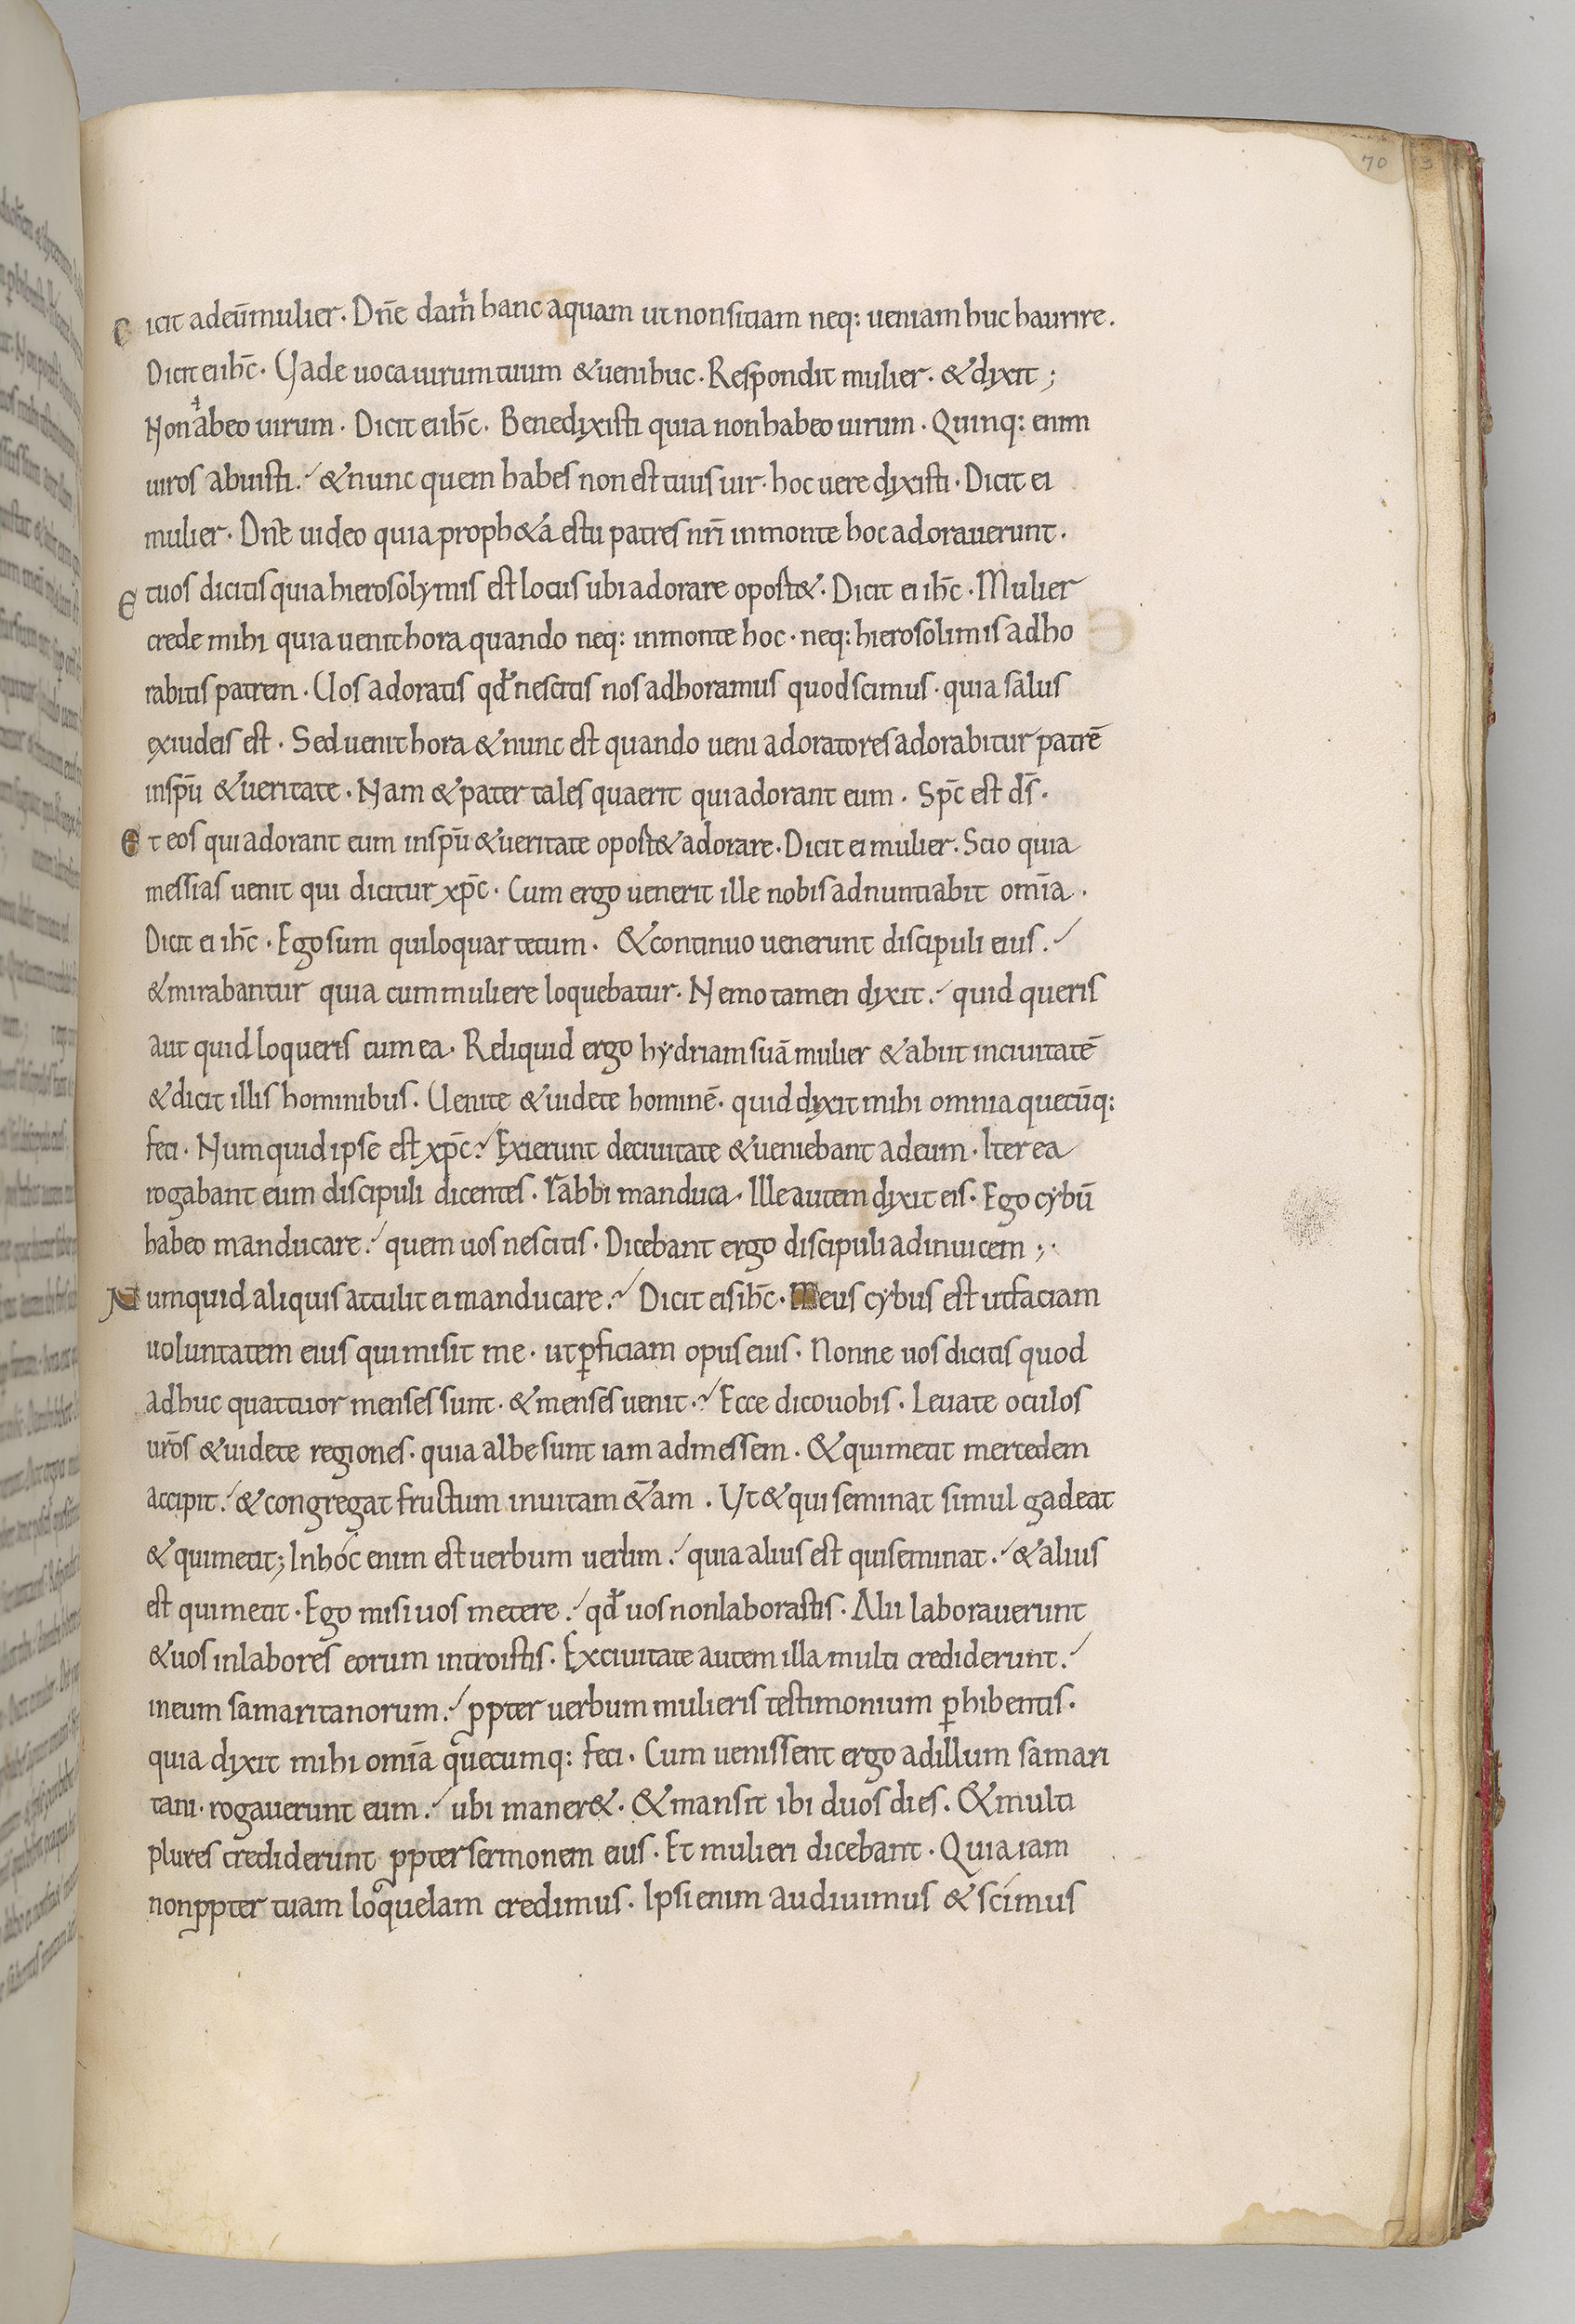 70 3
Dicit ad eū mulier. Dn̄e da m̄ hanc aquam ut non sitiam neq: ueniam huc haurire.
Dicit ei ih̄c. Uade uoca uirum tuum & ueni huc. Respondit mulier. & dixit;
Non abeo uirum. Dicit ei ih̄c. Bene dixisti quia non habeo uirum. Quinq: enim
uiros abuisti. & nunc quem habes non est tuus uir. hoc uere dixisti. Dicit ei
mulier. Dn̄e uideo quia proph&a es tu patres nr̄i in monte hoc adorauerunt.
Et uos dicitis quia hierosolymis est locus ubi adorare oport&. Dicit ei ih̄c. Mulier
crede mihi quia uenit hora quando neq: in monte hoc. neq: hierosolimis adho
rabitis patrem. Uos adoratis qđ nescitis nos adhoramus quod scimus. quia salus
ex iudeis est. Sed uenit hora & nunc est quando ueri adoratores adorabitur patrē
in sp̄u & ueritate. Nam & pater tales quaerit qui adorant eum. Sp̄c est ds̄.
Et eos qui adorant eum in sp̄u & ueritate oport& adorare. Dicit ei mulier. Scio quia
messias uenit qui dicitur xp̄c. Cum ergo uenerit ille nobis adnuntiabit om̄ia.
Dicit ei ih̄c. Ego sum qui loquar tecum. & continuo uenerunt discipuli eius.
& mirabantur quia cum muliere loquebatur. Nemo tamen dixit. quid queris
aut quid loqueris cum ea. Reliquid ergo hydriam suā mulier & abiit in ciuitatē
& dicit illis hominibus. Uenite & uidete hominē. quid dixit mihi omnia quecūq:
feci. Numquid ipse est xp̄c. Exierunt de ciuitate & ueniebant ad eum. Iter ea
rogabant eum discipuli dicentes. rabbi manduca. Ille autem dixit eis. Ego cybū
habeo manducare. quem uos nescitis. Dicebant ergo discipuli ad inuicem;
Numquid aliquis attulit ei manducare. Dicit eis ih̄c. Meus cybus est ut faciam
uoluntatem eius qui misit me. ut ꝑficiam opus eius. Nonne uos dicitis quod
adhuc quattuor menses sunt. & menses uenit. Ecce dico uobis. Leuate oculos
ur̄os & uidete regiones. quia albe sunt iam ad messem. & qui metit mercedem
accipit. & congregat fructum in uitam &̄am. Ut & qui seminat simul gadeat
& qui metit; In hoc enim est uerbum uerum. quia alius est qui seminat. & alius
est qui metit. Ego misi uos metere. qđ uos non laborastis. Alii laborauerunt
& uos in labores eorum introistis. Ex ciuitate autem illa multi crediderunt.
in eum samaritanorum. ꝓpter uerbum mulieris testimonium ꝑhibentis.
quia dixit mihi om̄ia quecumq: feci. Cum uenissent ergo ad illum samari
tani. rogauerunt eum. ubi maner&. & mansit ibi duos dies. & multi
plures crediderunt ꝓpter sermonem eius. Et mulieri dicebant. Quia iam
non ꝓpter tuam loquelam credimus. Ipsi enim audiuimus & scimus